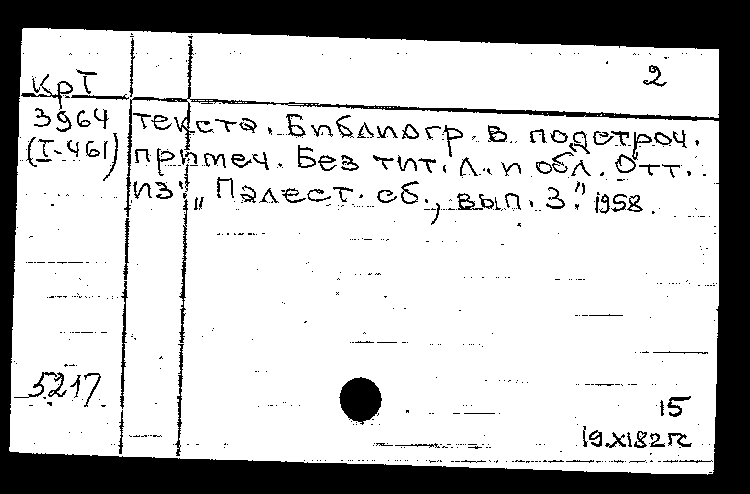 2
КрТ
3964
(I-461)
текста. Библиогр. в подстроч.
примеч. Без тит. л. и обл. Отт.
из: „Палест. сб., вып. 3". 1958.
5217
15
19.XI82г